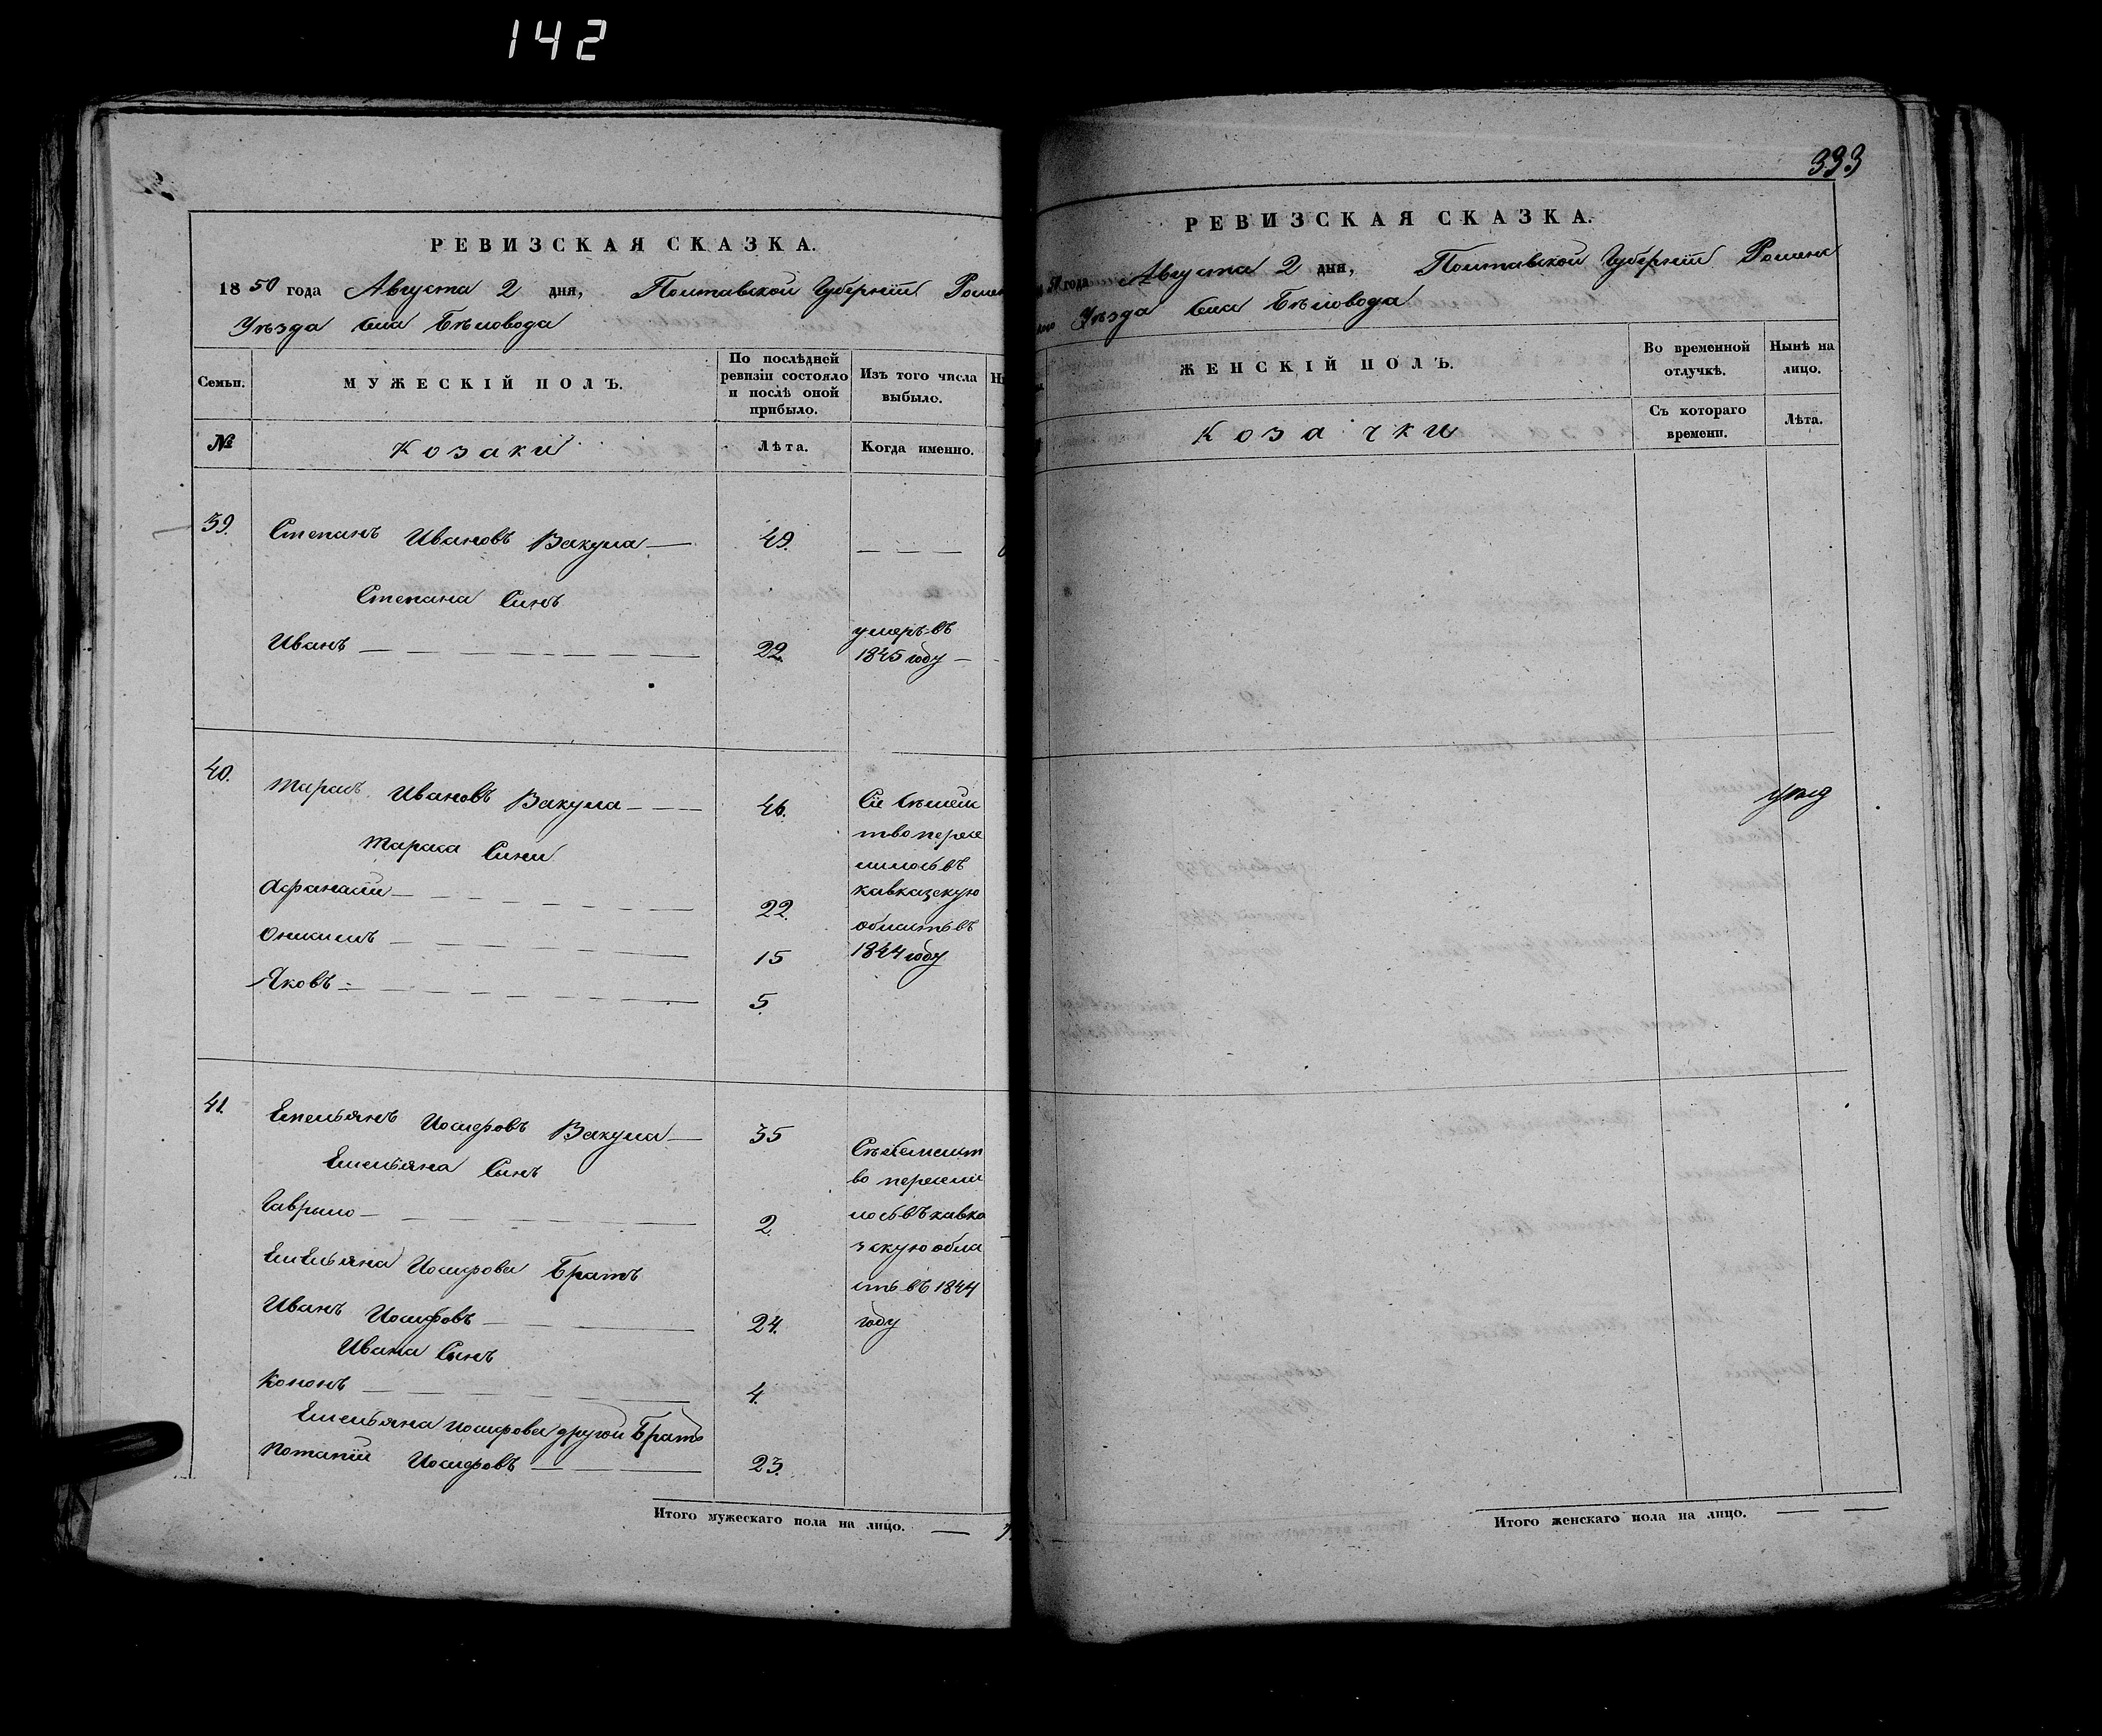 142
РЕВИЗСКАЯ СКАЗКА.
1850 года Августа 2 дня, Полтавской Губерніи Ромен
Уѣзда Села Бѣловода
Семьи.
МУЖЕСКІЙ ПОЛЪ.
По послѣдней ревизіи состояло и послѣ оной прибыло.
Изъ того числа выбыло.
№
Козаки
Лѣта.
Когда именно.
39. Степанъ Ивановъ Вакула 49.
Степана Синъ
Иванъ 22. умеръ въ 1845 году
40. Тарасъ Ивановъ Вакула 46. Сіе Семей
ство пересе
Тараса Сини
лилось въ
Афанасий 22. кавказскую
Онисимъ 15 область въ
1844 году
Яковъ 5.
41. Емельянъ Иосифовъ Вакула 35
Емельяна Сынъ
Сіе Семейст
во пересели
Гаврыло 2. лось въ кавка
зскую обла
Емельяна Иосифова Братъ
сть въ 1844
Иванъ Иосифовъ 24. году
Ивана Сынъ
Кононъ 4.
Емельяна Иосифова другой Братъ
Потапий Иосифовъ 23.
Итого мужескаго пола на лицо.
333
РЕВИЗСКАЯ СКАЗКА.
года Августа 2 дня, Полтавской Губерніи Роменс
Уѣзда Села Бѣловода
ЖЕНСКІЙ ПОЛЪ.
Во временной отлучкѣ.
Нынѣ на лицо.
Козачки
Съ котораго времени.
Лѣта.
Итого женскаго пола на лицо.